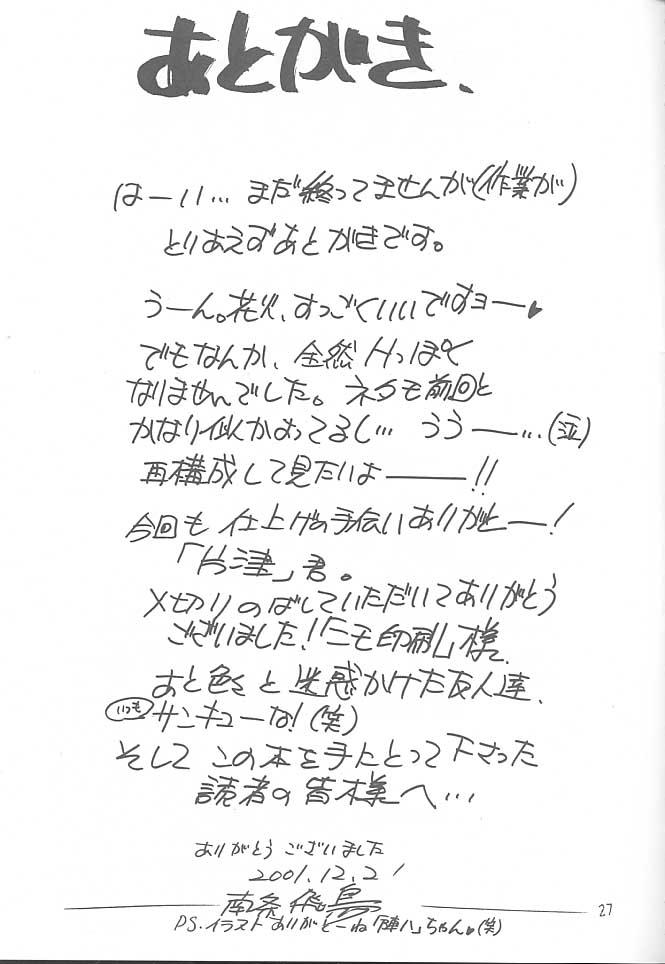 あとがき、
はーい… まだ終ってませんが(作業が)
とりあえずあとがきです。
うーん。花火、すっごくいいですョー♥
でもなんか、全然Hっぽく
なりませんでした。ネタも前回と
かなり似かよってるし… うう——…(泣)
再構成して見たいよ———!!
今回も 仕上げの手伝いありがとー!
「片津」君。
〆切りのばしていただいてありがとう
ございました!「ニモ印刷」様。
あと色々と迷惑かけた友人達、
いつもサンキューな!(笑)
そして この本を手にとって下さった
読者の皆様へ…
ありがとう ございました
2001.12.21
南条飛鳥
P.S.イラスト ありがとーね「陣八」ちゃん♥(笑)
27